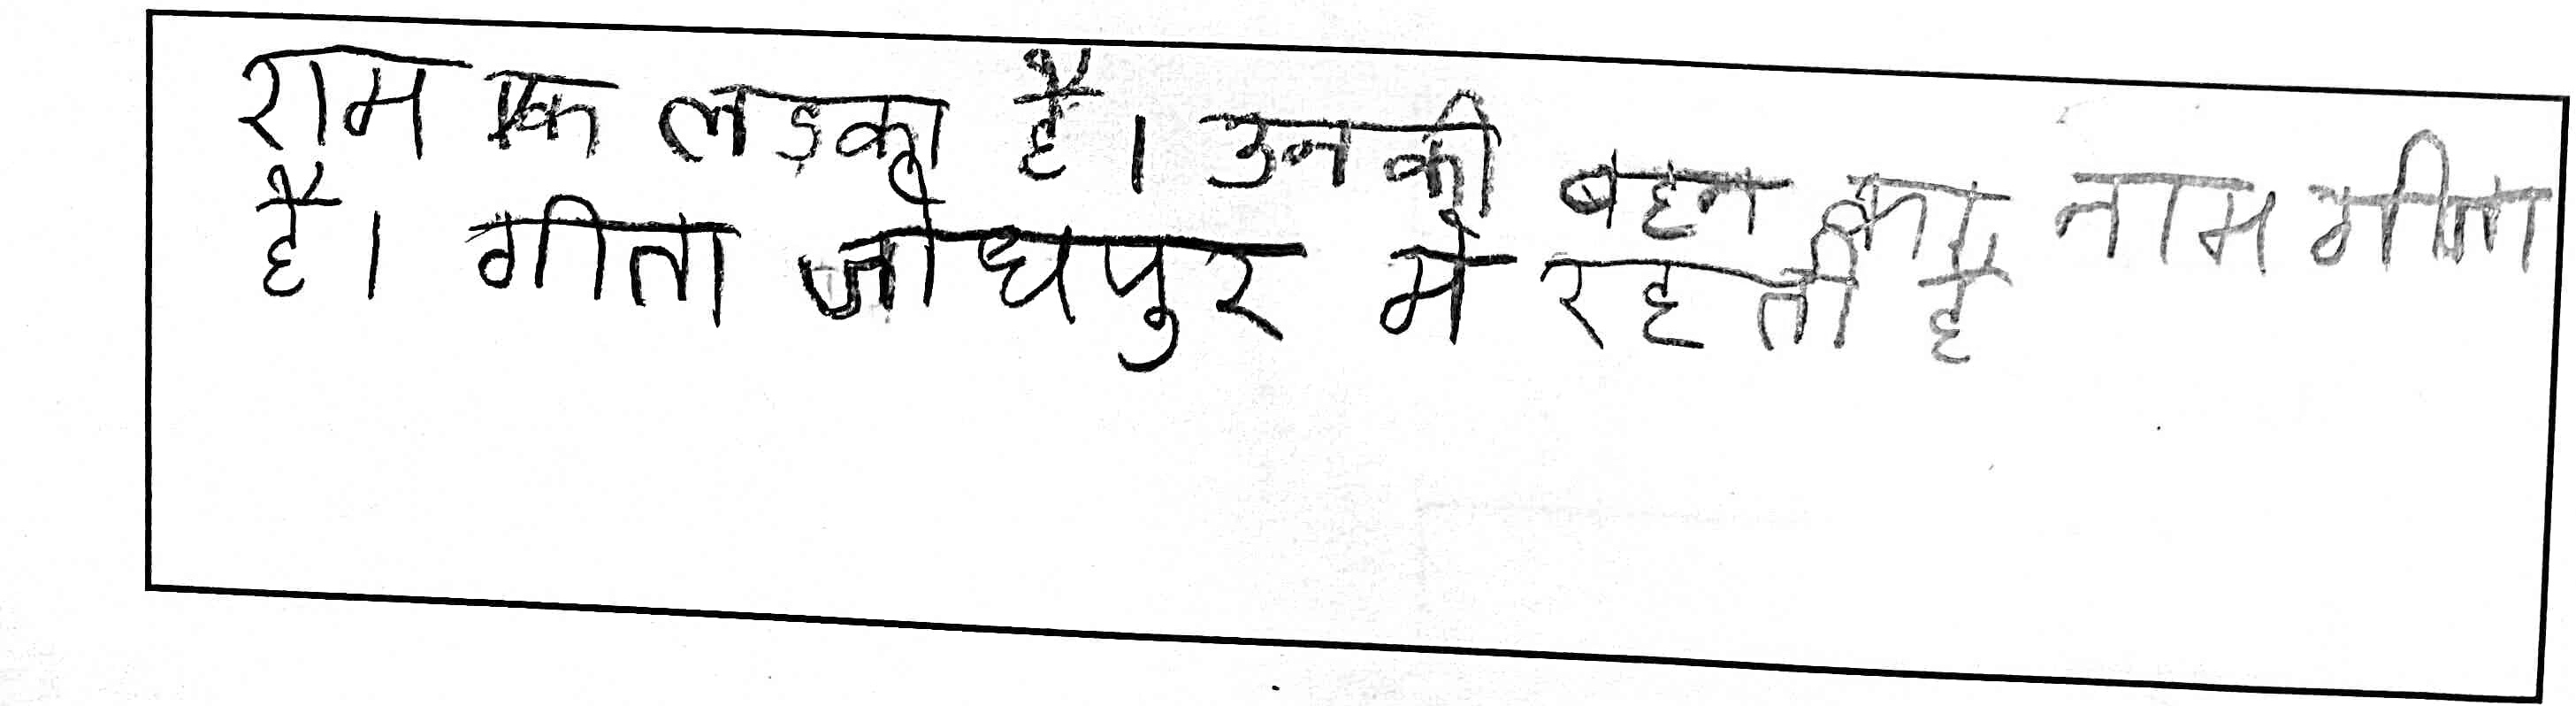 राम एक लड़का है। उनकी बहन का नाम गीता
है। गीता जोधपुर मे रहती है